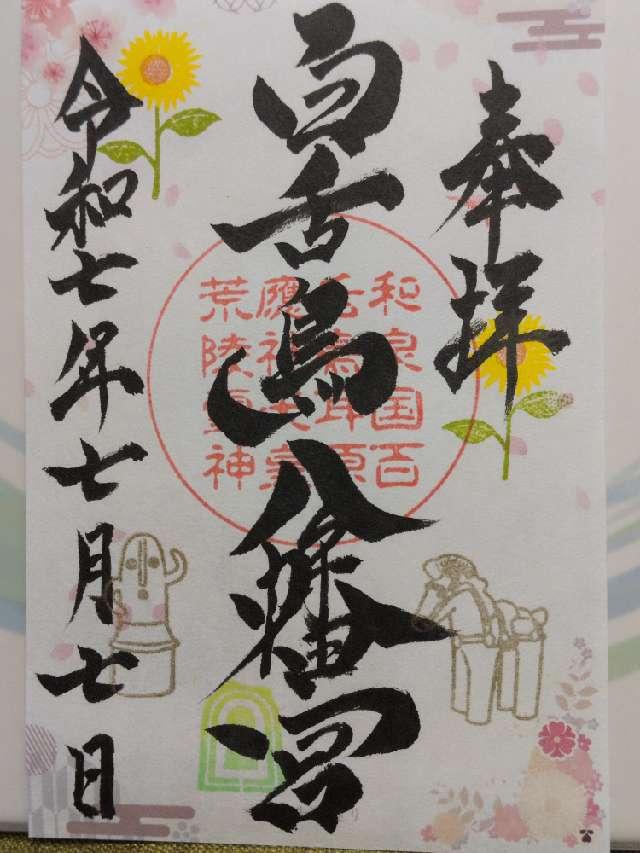 奉拝
百舌鳥八幡宮
令和七年七月七日
和泉国百
舌鳥耳原
應神天皇
荒陵靈神